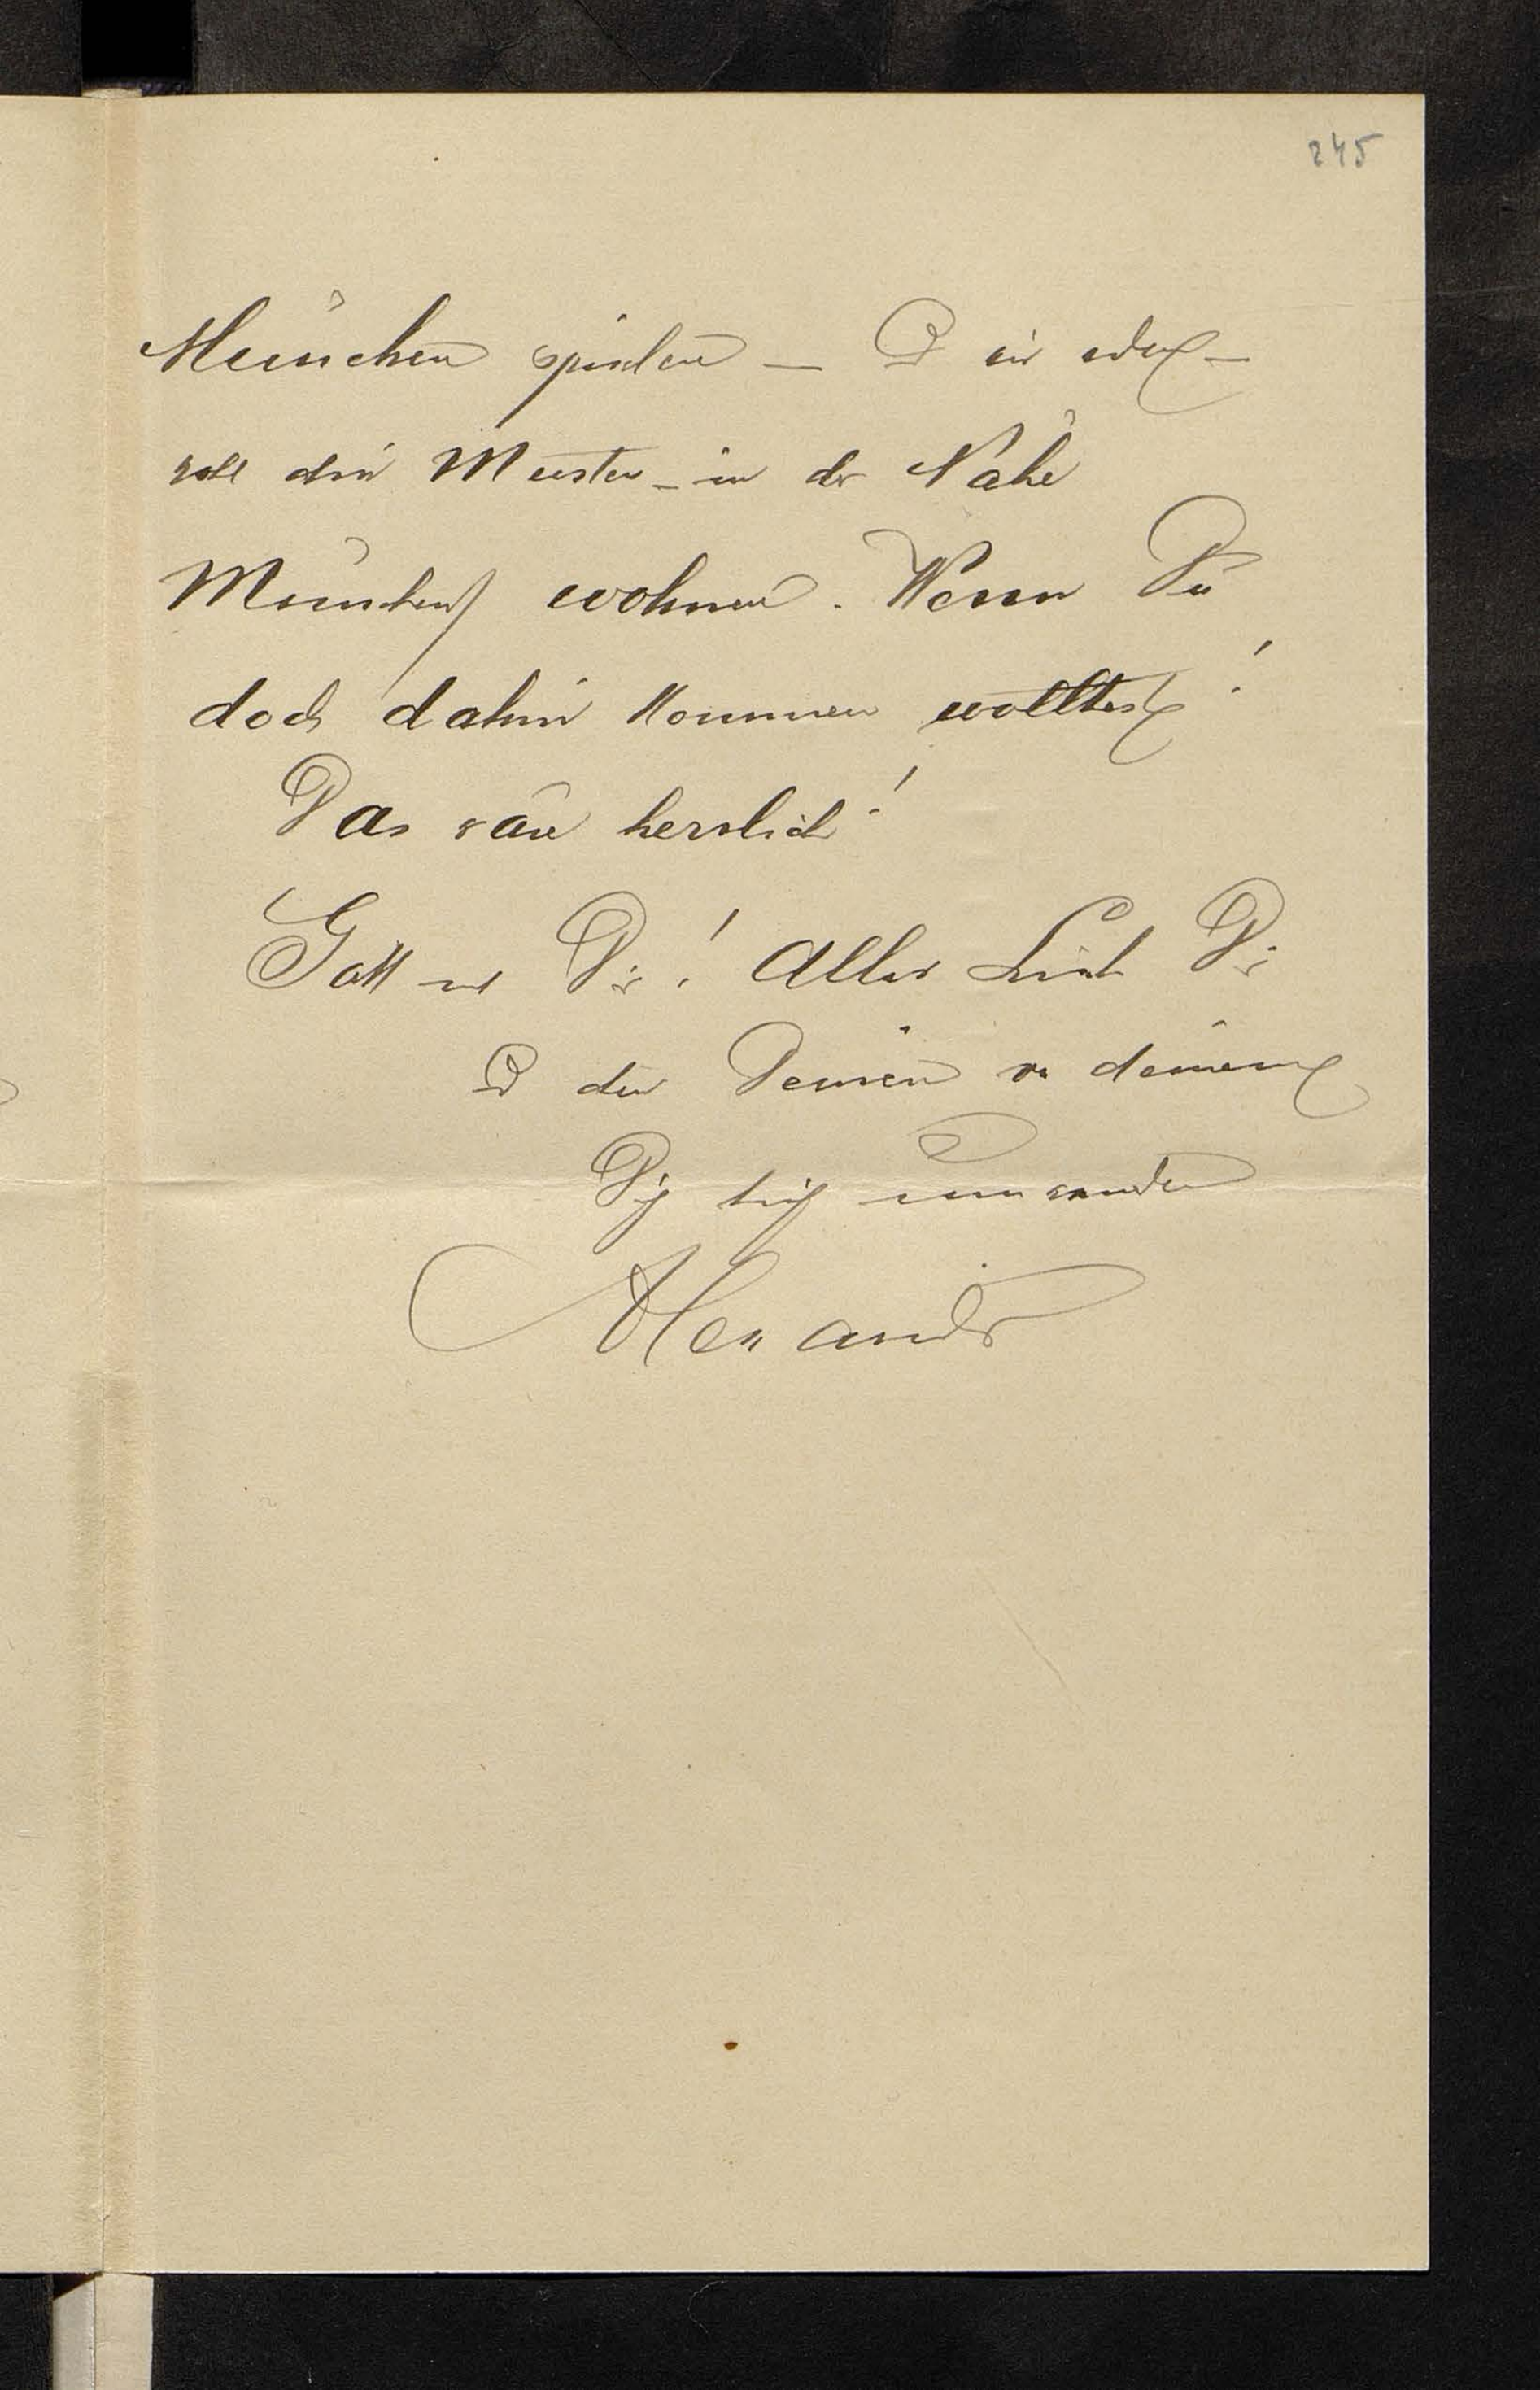 245
München spielen — & wir
wohl drei Meister - in der Nähe
Münchens wohnen. Wenn Du
doch dahin kommen wolltest!
Das wäre herrlich!
Gott mit Dir! Alles Dir
& den Deinen von deinem
Dich umarmenden
Alexander